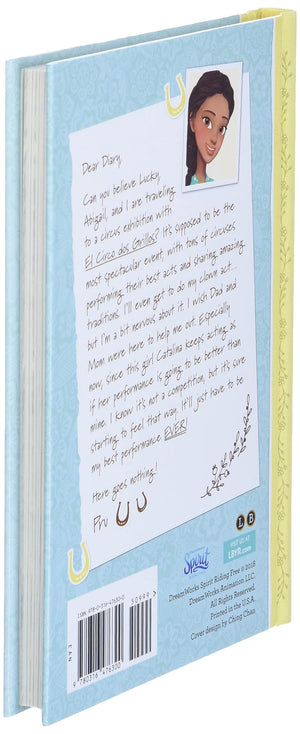 Dear Diary,
Can you believe Lucky,
Abigail, and I are traveling
to a circus exhibition with
El Circo dos Grillos? It's supposed to be the
most spectacular event, with tons of circuses
performing their best acts and sharing amazing
traditions. I'll even get to do my clown act...
but I'm a bit nervous about it. I wish Dad and
Mom were here to help me out. Especially
now, since this girl Catalina keeps acting as
if her performance is going to be better than
mine. I know it's not a competition, but it's sure
starting to feel that way. It'll just have to be
my best performance EVER!
Here goes nothing!
Pru
L B
VISIT US AT
LBYR.com
Spirit
DreamWorks Spirit Riding Free © 2018
DreamWorks Animation LLC.
All Rights Reserved.
Printed in the U.S.A.
Cover design by Ching Chan
ISBN 978-0-316-47630-0
50999
EAN
9 780316 476300